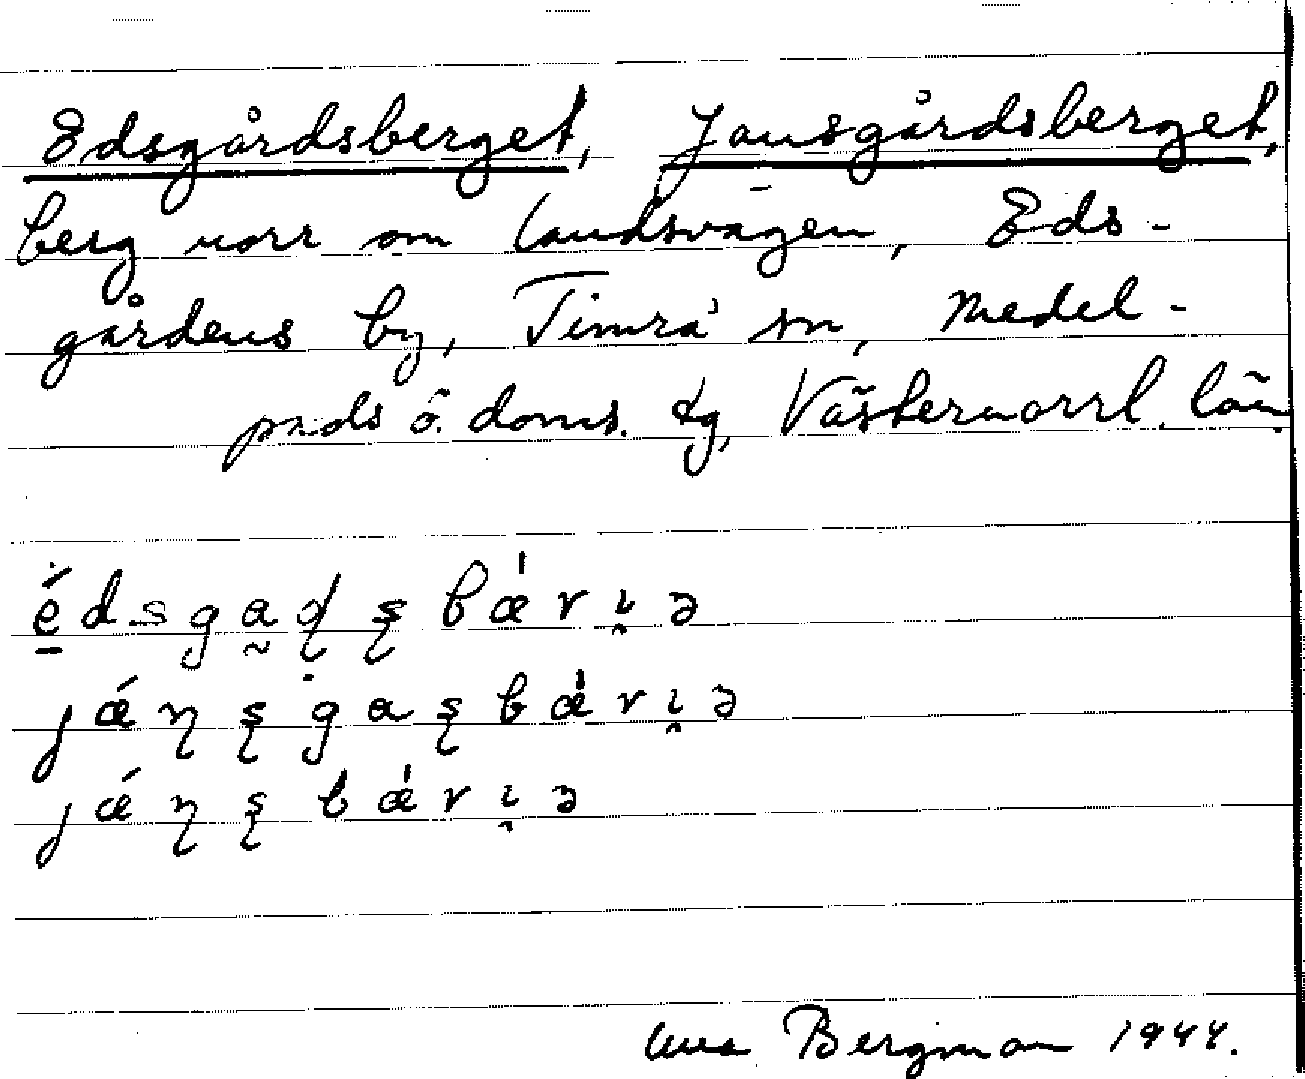 Edsgårdsberget, Jansgårdsberget,
berg norr om landsvägen, Eds-
gårdens by, Timrå sn, Medel-
pads ö. doms. tg, Västernorrl. län.
édsgaɖʂbǽrɩ̯ə
jǽɳʂgaʂbǽrɩ̯ə
jǽɳʂbǽrɩ̯ə
Bergman 1944.